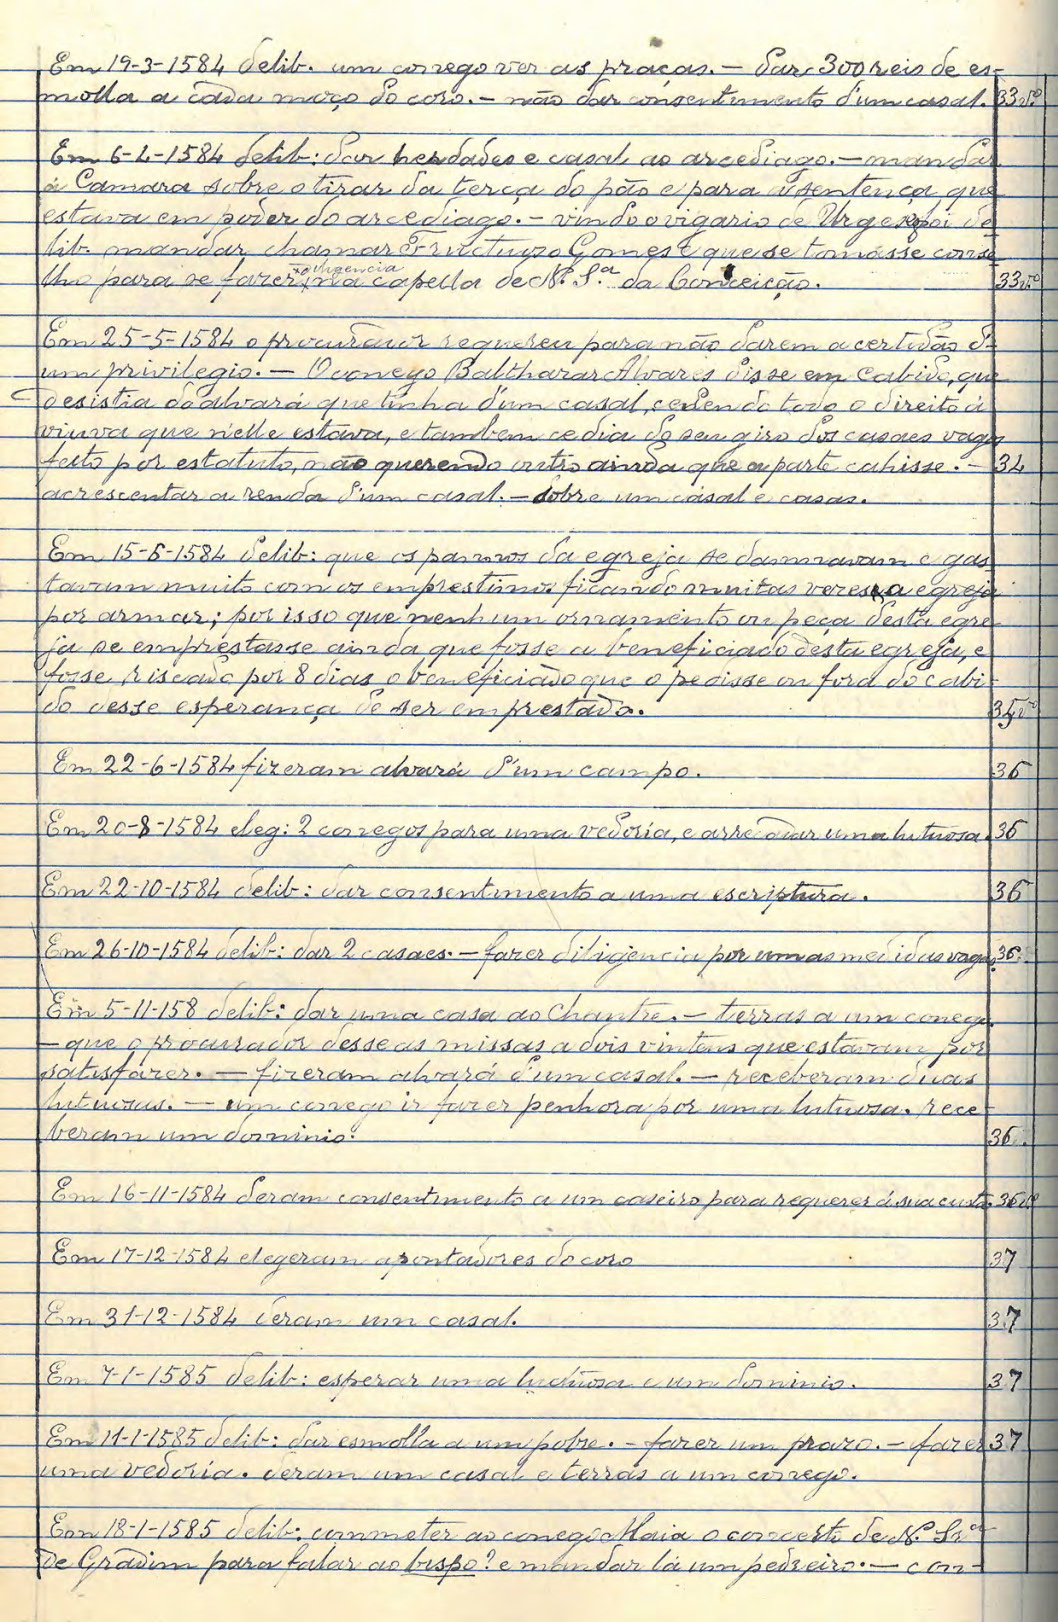 Em 19-3-1584 delib. um conego ver as praças. — dar 300 reis de es-
molla a cada moço do coro. — não dar consentimento d'um casal. 33vº
Em 6-4-1584 delib: dar herdades e casal ao arcediago. — mandar
á Camara sobre o tirar da terça do pão e para a sentença, que
estava em poder do arcediago. — vindo o vigario de Urgezes foi de-
lib. mandar chamar Fructuoso Gomes e que se tomasse conse-
lho para se fazer diligencia na capella de N.ª S.ª da Conceição. 33vº
Em 25-5-1584 o procurador requereu para não darem a certidão d'
um privilegio. — O conego Balthazar Alvares disse em Cabido, que
desistia do alvará que tinha d'um casal, cedendo todo o direito á
viuva que n'elle estava, e tambem cedia do seu giro dos casaes vagos
feito por estatuto, não querendo outro ainda que a parte cahisse. — 34
acrescentar a renda d'um casal. — sobre um casal e casas.
Em 15-6-1584 delib: que os pannos da egreja se damnavam e gas-
tavam muito com os emprestimos ficando muitas vezes a egreja
por armar; por isso que nenhum ornamento ou peça desta egre-
ja se emprestasse ainda que fosse a beneficiado desta egreja, e
fosse riscado por 8 dias o beneficiado que o pedisse ou fora do cabi-
do desse esperança de ser emprestado. 35vº
Em 22-6-1584 fizeram alvará d'um campo. 36
Em 20-8-1584 eleg: 2 conegos para uma vedoria, e arrecadar uma lutuosa. 36
Em 22-10-1584 delib: dar consentimento a uma escriptura. 36
Em 26-10-1584 delib: dar 2 casaes. — fazer diligencia por umas medidas vagas. 36
Em 5-11-158 delib: dar uma casa ao Chantre. — terras a um conego.
— que o procurador desse as missas a dois vintens que estavam por
satisfazer. — fizeram alvará d'um casal. — receberam duas
lutuosas. — um conego ir fazer penhora por uma lutuosa. rece-
beram um dominio. 36
Em 16-11-1584 deram consentimento a um caseiro para requerer á sua custa. 36vº
Em 17-12-1584 elegeram apontadores do coro 37
Em 31-12-1584 deram um casal. 37
Em 7-1-1585 delib: esperar uma luctuosa e um dominio. 37
Em 11-1-1585 delib: dar esmolla a um pobre. — fazer um prazo. — fazer 37
uma vedoria. deram um casal e terras a um conego.
Em 18-1-1585 delib: commeter ao conego Maia o concerto de N.ª Sr.ª
de Gradim para falar ao bispo? e mandar lá um pedreiro. — con-